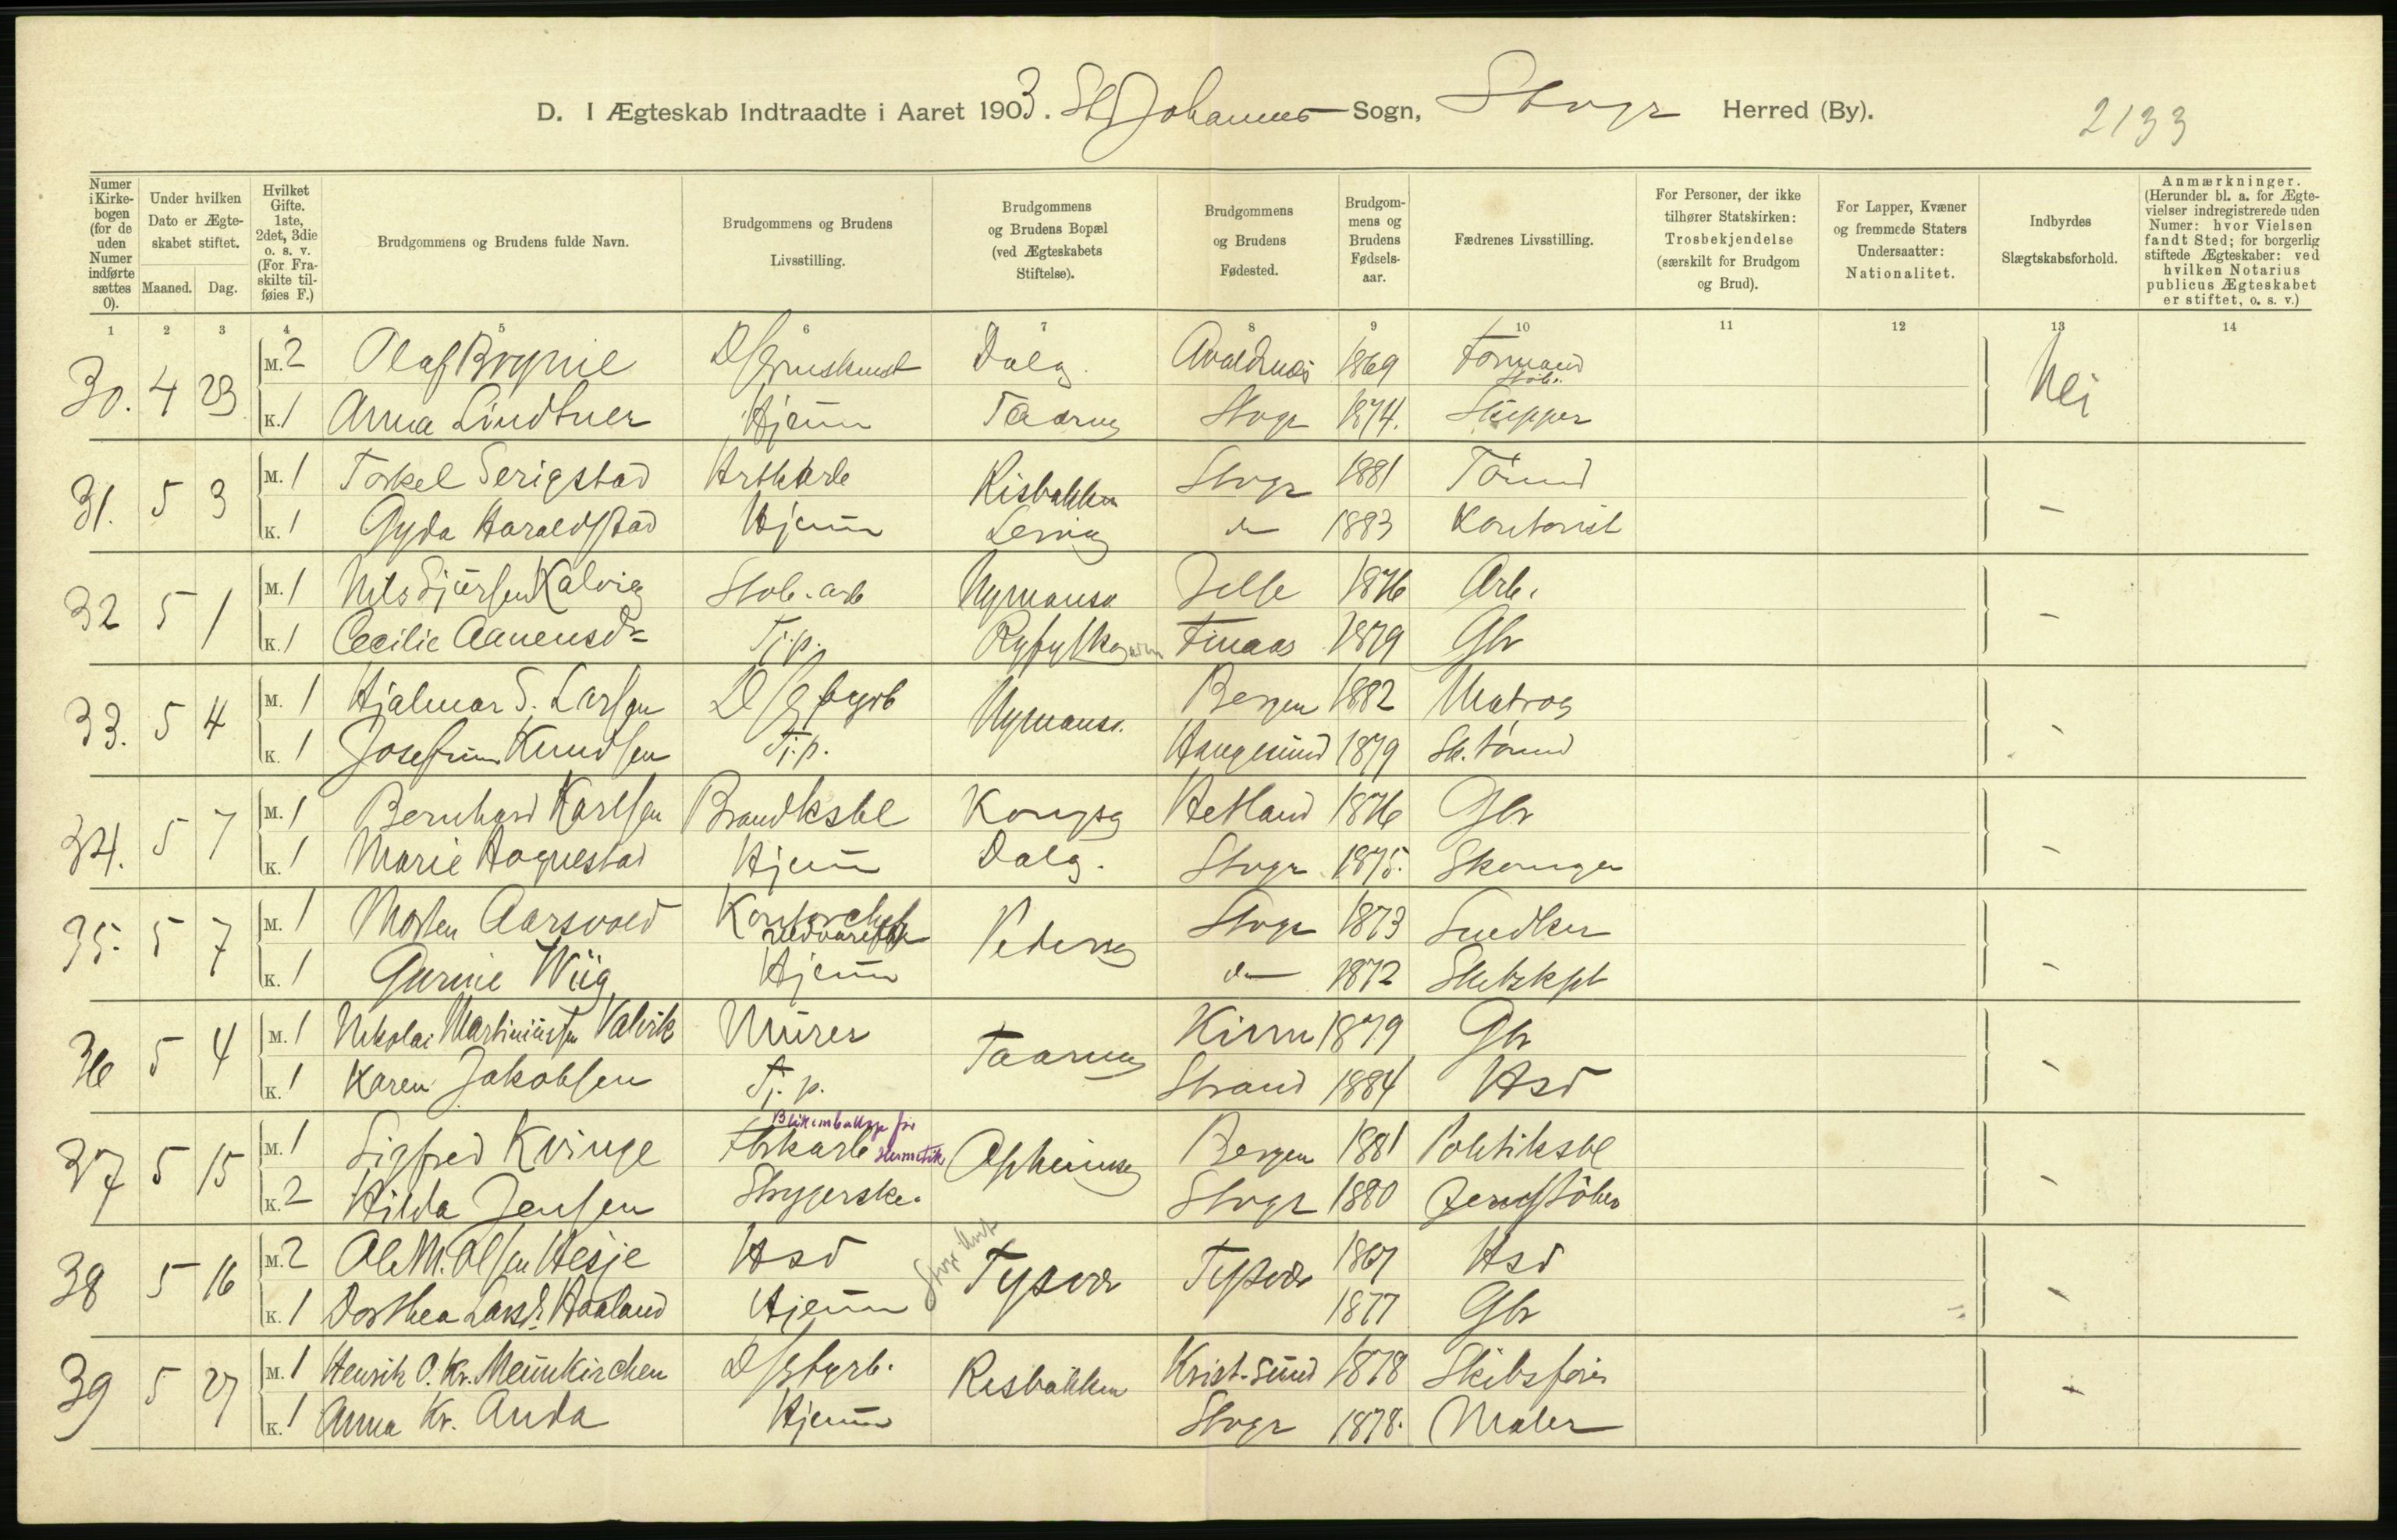 D. I Ægteskab Indtraadte i Aaret 1903. St Johannes Sogn, Stvgr Herred (By). 2133
Numer i Kirkebogen (for de uden Numer indførte sættes 0).
Under hvilken Dato er Ægteskabet stiftet. Maaned. Dag.
Hvilket Gifte. 1ste, 2det, 3die o. s. v. (For Fraskilte tilføies F.)
Brudgommens og Brudens fulde Navn.
Brudgommens og Brudens Livsstilling.
Brudgommens og Brudens Bopæl (ved Ægteskabets Stiftelse).
Brudgommens og Brudens Fødested.
Brudgommens og Brudens Fødselsaar.
Fædrenes Livsstilling.
For Personer, der ikke tilhører Statskirken: Trosbekjendelse (særskilt for Brudgom og Brud).
For Lapper, Kvæner og fremmede Staters Undersaatter: Nationalitet.
Indbyrdes Slægtskabsforhold.
Anmærkninger. (Herunder bl. a. for Ægtevielser indregistrerede uden Numer: hvor Vielsen fandt Sted; for borgerlig stiftede Ægteskaber: ved hvilken Notarius publicus Ægteskabet er stiftet, o. s. v.)
1 2 3 4 5 6 7 8 9 10 11 12 13 14
30. 4 23 M. 2 Olaf Brynie Dalg. Avaldsnæs 1869 Formand Nei
K. 1 Anna Lindtner Hjem Taarng Stvgr 1874. Skipper
31. 5 3 M. 1 Torkel Serigstad Risbakken Stvgr 1881 Tømd –
K. 1 Gyda Haraldstad Hjem Lervig do 1883 Kontorist
32 5 1 M. 1 Nils Sjursen Kalvig Stob. arb Nymansv Jelse 1876 Arb. –
K. 1 Cecilie Aanensd= Tj.p. Ryfylkeg Finaas 1879 Gbr
33. 5 4 M. 1 Hjalmar S. Larsen D/sk fyrb Nymansv. Bergen 1882 Matros –
K. 1 Josefine Knudsen Tj.p. Haugesund 1879 Sk. tømd
34. 5 7 M. 1 Bernhard Karlsen Brandkstbl Kongsg Hetland 1876 Gbr –
K. 1 Marie Hognestad Hjem Dalg. Stvgr 1875. Skomager
35. 5 7 M. 1 Morten Aarsvold Kontorchef Pedersg Stvgr 1873 Snedker –
K. 1 Gurine Wiig Hjem do 1872 Skibskpt
36 5 4 M. 1 Nikolai Martiniusen Valvik Murer Taarng Kinn 1879 Gbr –
K. 1 Karen Jakobsen Tj. p. Strand 1884 Hsd
37 5 15 M. 1 Sigfred Kvinge Blikemballage for Hermetik Bergen 1881 Politikstbl –
K. 2 Hilda Jensen Strygerske. Stvgr 1880 Jernstøber
38 5 16 M. 2 Ole M. Olsen Hesje Hsd Tysvær Tysvær 1867 Hsd –
K. 1 Dorthea Larsd. Haaland Hjem 1877 Gbr
39 5 27 M. 1 Henrik O. Kr. Meinkirchen D/sk fyrb. Risbakken Krist.sund 1878 Skibsfører –
K. 1 Anna Kr. Anda Hjem Stvgr 1878. Maler